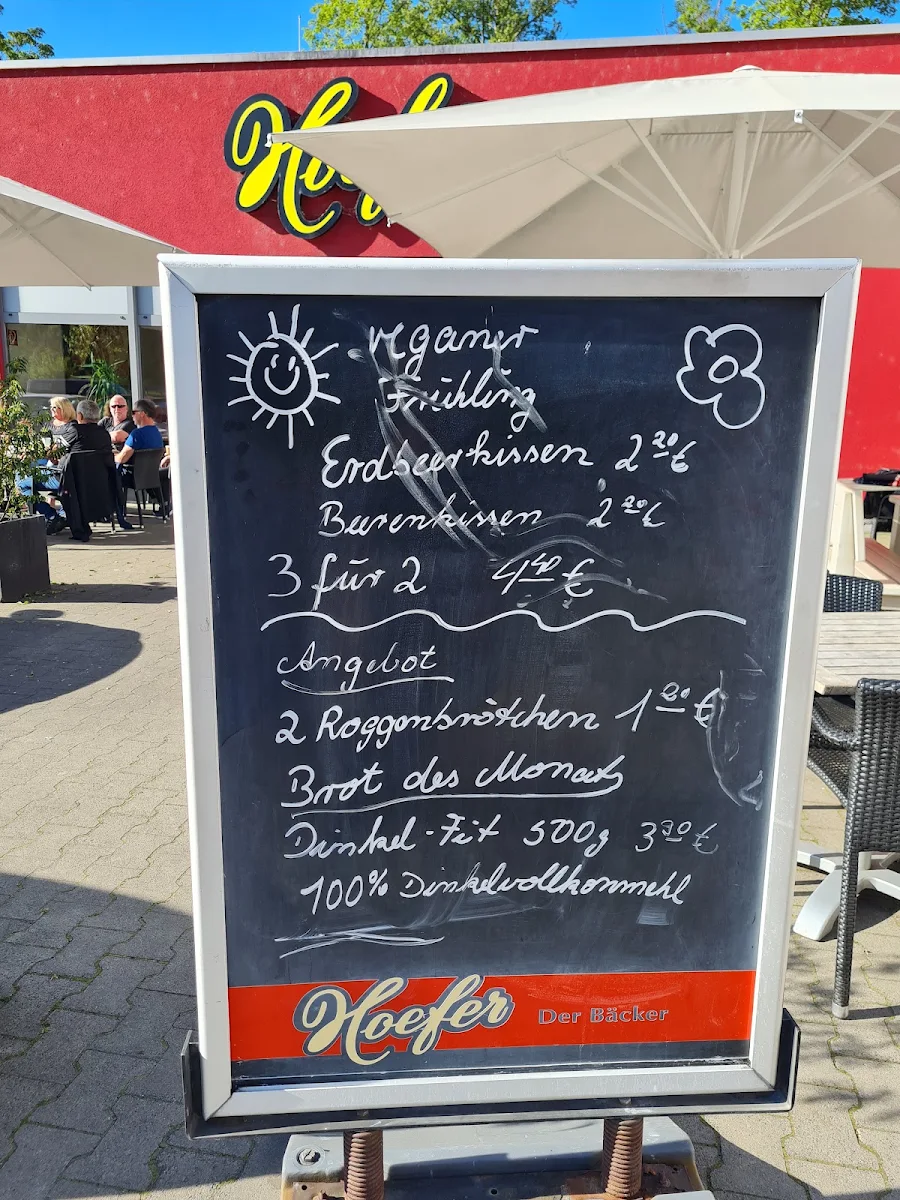 Hoef
veganer
Frühling
Erdbeerkissen 2 20 €
Beerenkissen 2 20 €
3 für 2 4 40 €
Angebot
2 Roggenbrötchen 1 20 €
Brot des Monats
Dinkel-Fit 500g 3 90 €
100% Dinkelvollkornmehl
Hoefer Der Bäcker